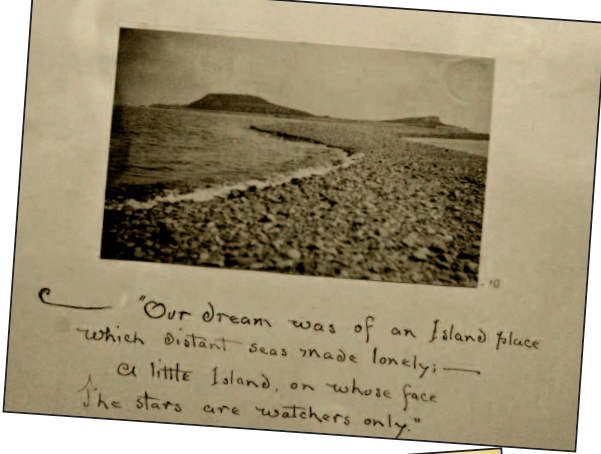 "Our dream was of an Island place
which distant seas made lonely; —
A little Island, on whose face
The stars are watchers only."